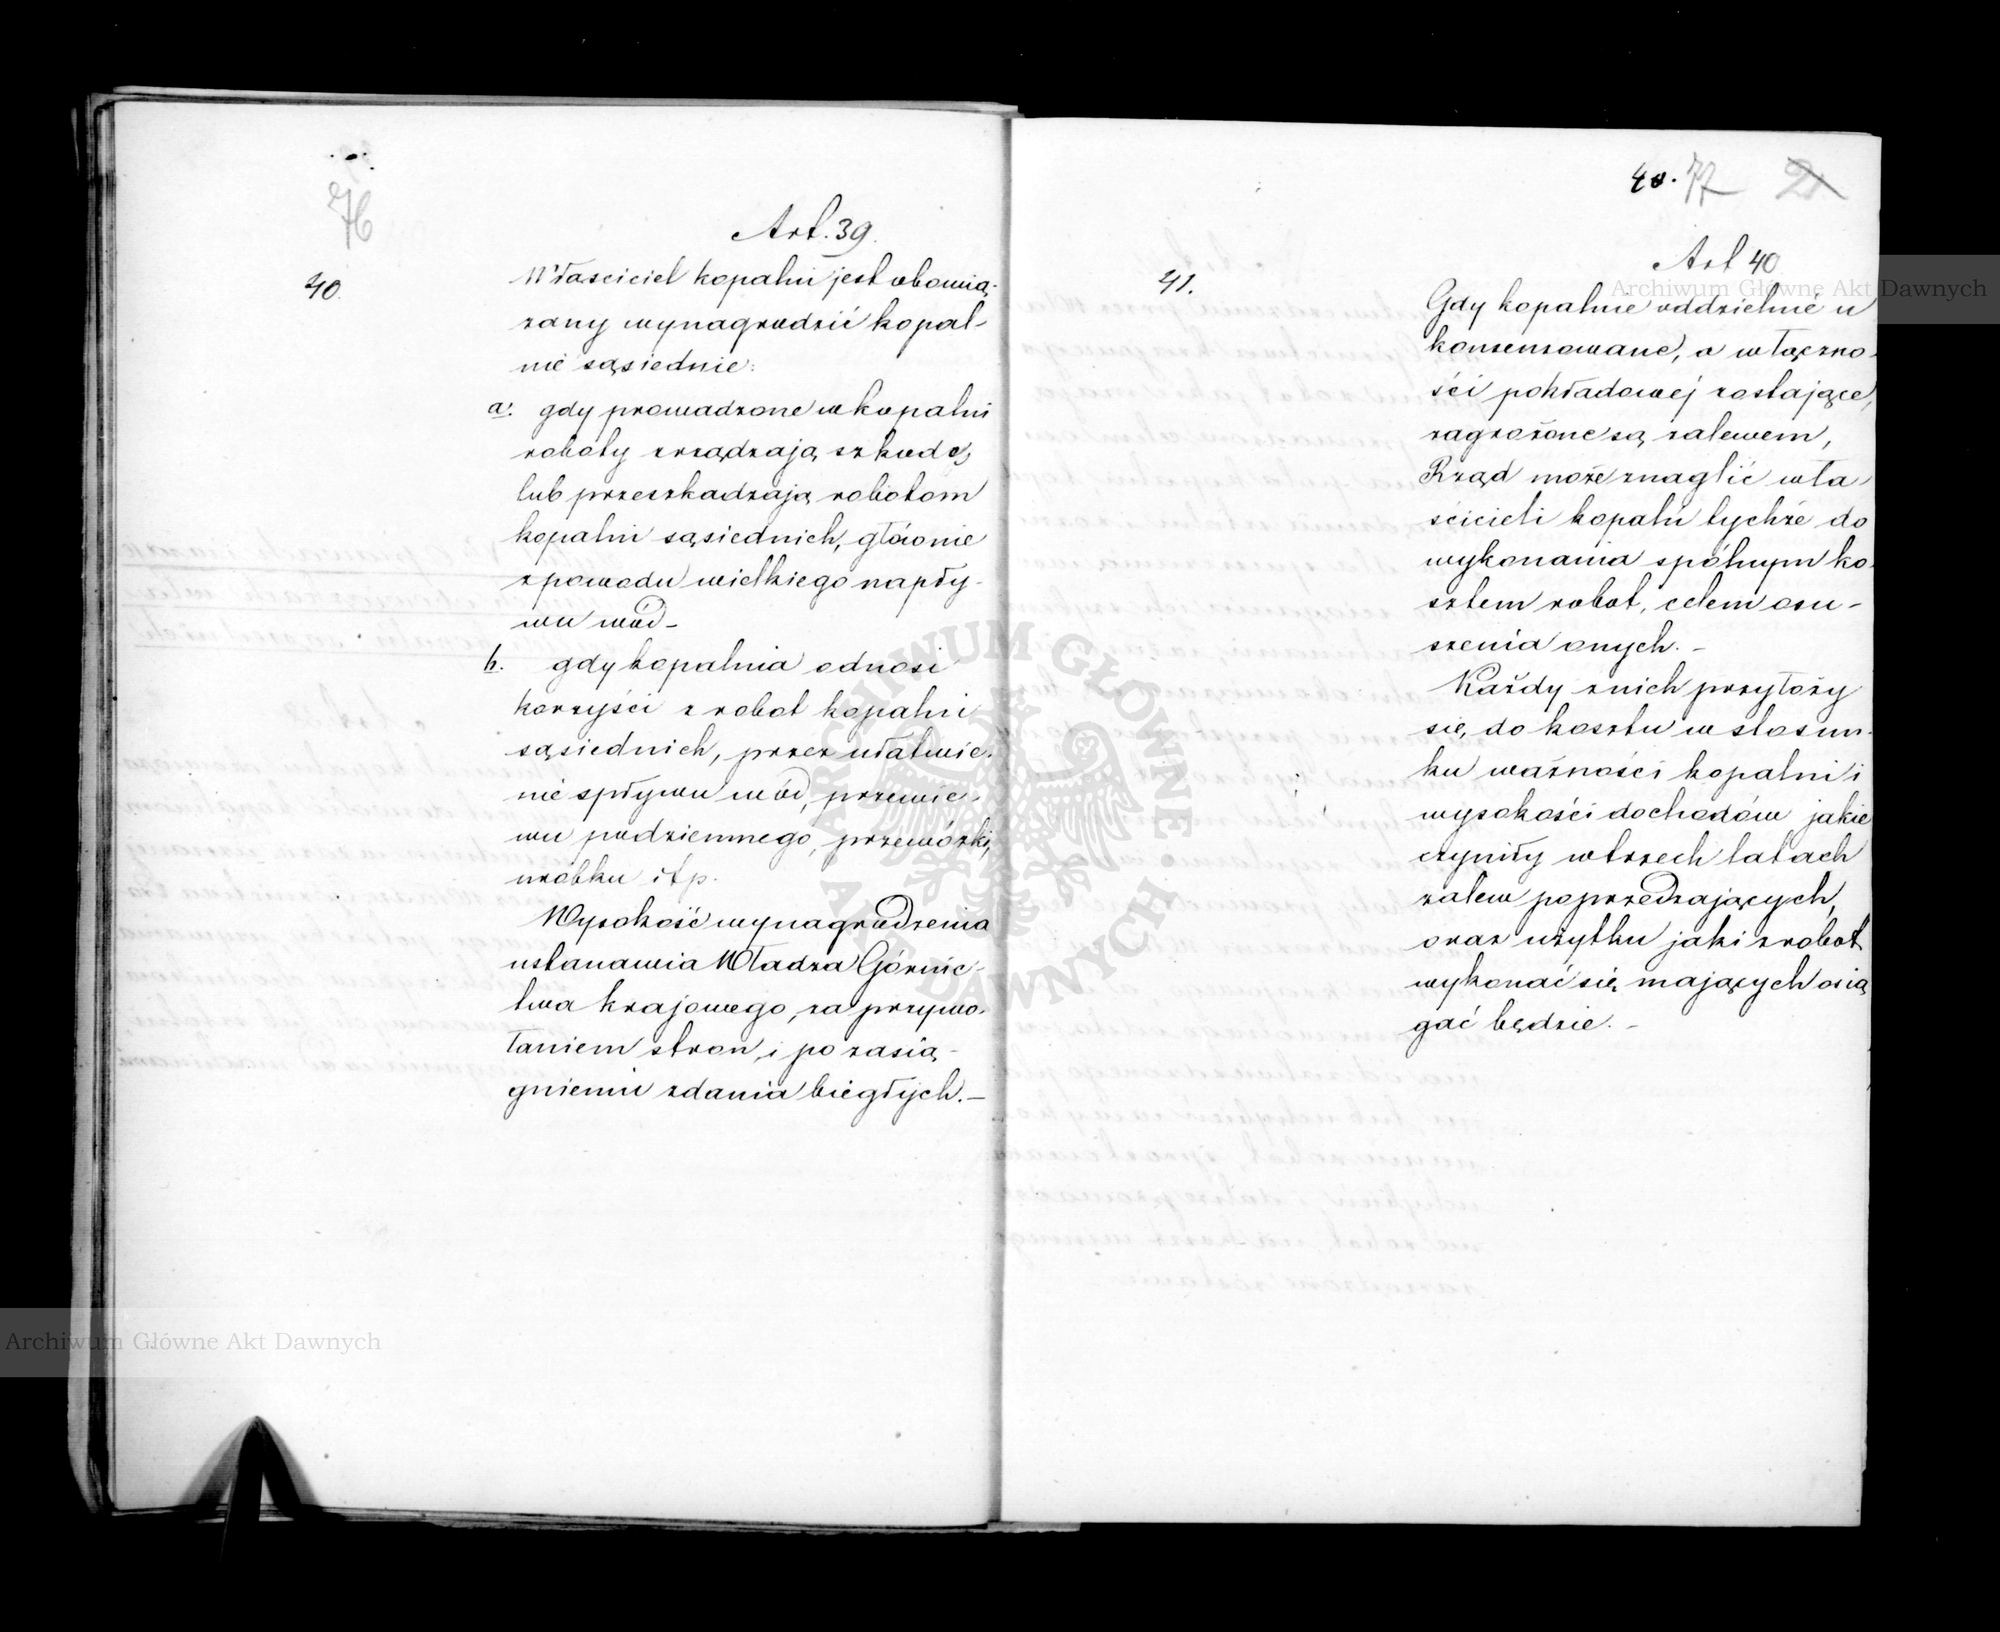 76
Art. 39.
40.
Właściciel kopalni jest obowią-
zany wynagrodzić kopal-
nie sąsiednie:
a. gdy prowadzone w kopalni
roboty zrządzają szkodę,
lub przeszkadzają robotom
kopalni sąsiednich, głównie
z powodu wielkiego napły-
wu wód –
b. gdy kopalnia odnosi
korzyści z robot kopalni
sąsiednich, przez ułatwie-
nie spływu wód, przewie-
wu podziemnego, przewózki,
urobku itp.
Wysokość wynagrodzenia
ustanawia Władza Górnic-
twa krajowego, za przywo-
łaniem stron, i po zasią-
gnieniu zdania biegłych. –
40. 77
Art 40
41.
Gdy kopalnie oddzielnie u
konsensowane, a w łączno-
ści pokładowej zostające,
zagrożone są zalewem,
Rząd może znaglić wła-
ścicieli kopalń tychże do
wykonania spólnym ko-
sztem robot, celem osu-
szenia onych. –
Każdy z nich przyłoży
się do kosztu w stosun-
ku ważności kopalni i
wysokości dochodów jakie
czyniły w trzech latach
zalew poprzedzających,
oraz użytku jaki z robot
wykonać się mających osią
gać będzie. –
Archiwum Główne Akt Dawnych
Archiwum Główne Akt Dawnych
ARCHIWUM GŁÓWNE AKT DAWNYCH